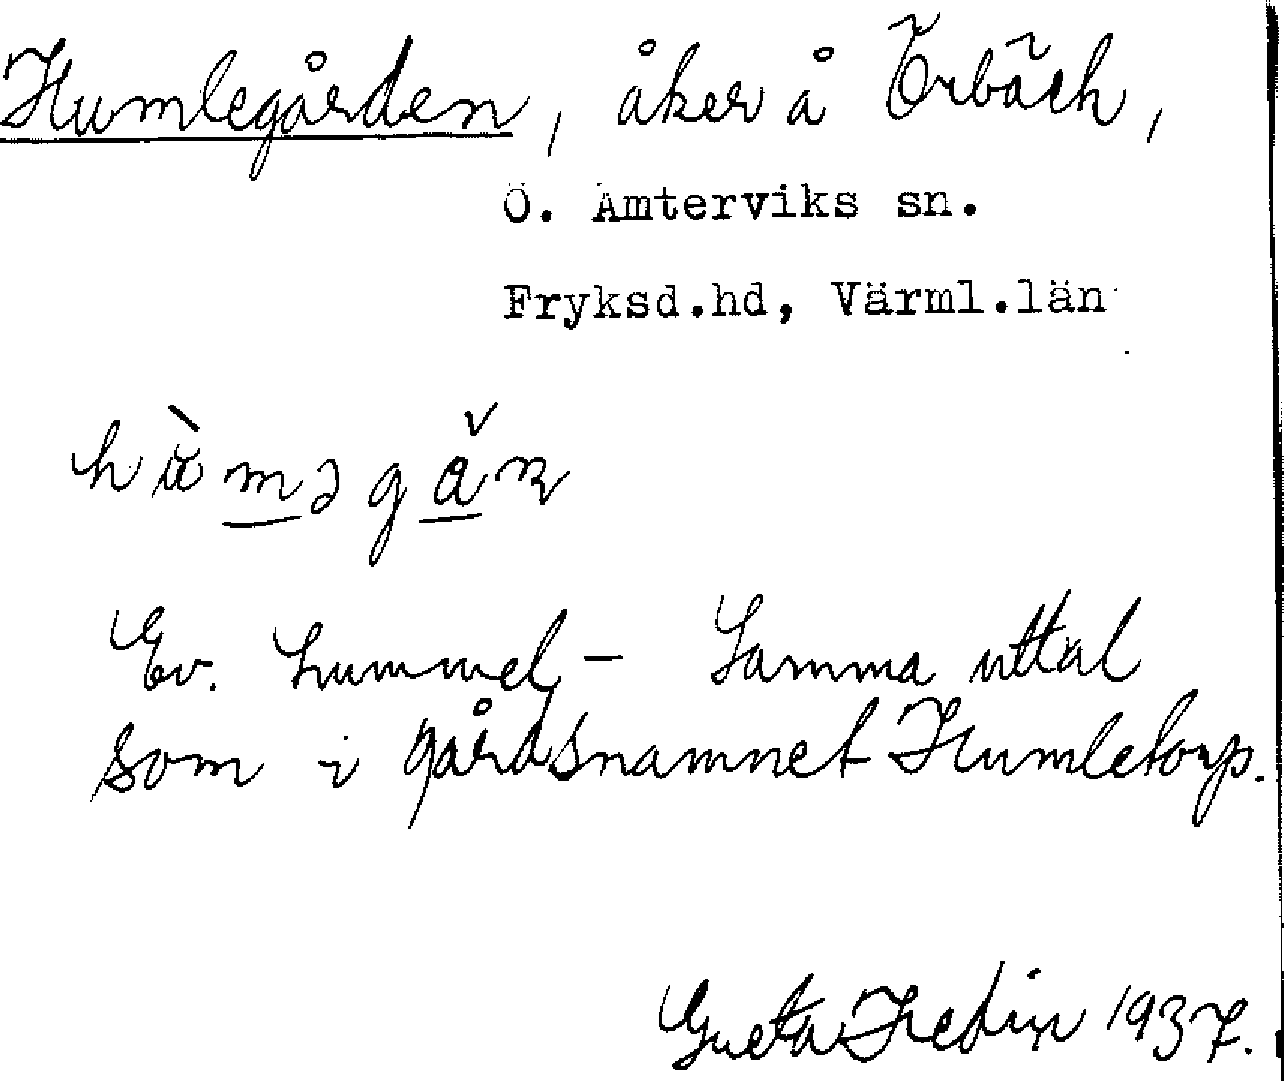 Humlegården, åker å Örbäck,
Ö. Ämterviks sn.
Fryksd.hd, Värml.län
Ev. hummel- Samma uttal
som i gårdsnamnet Humletorp.
Greta Hedin 1937.